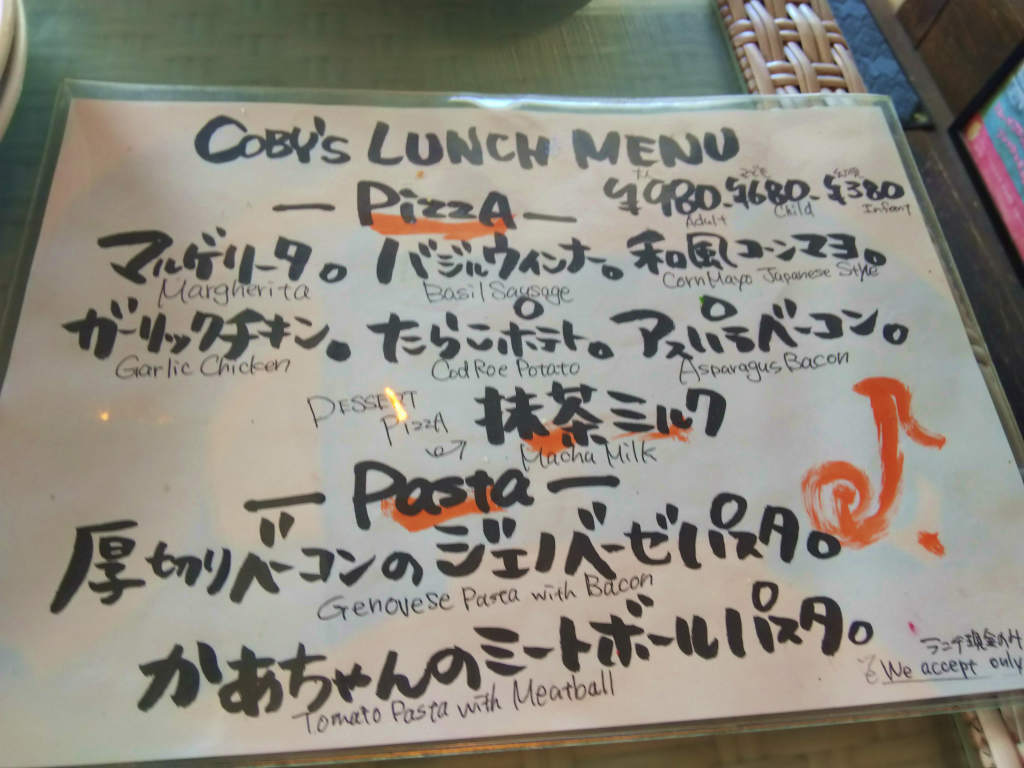 COBY'S LUNCH MENU
— PizzA — ¥980- ¥680- ¥380
Adult Child Infant
マルゲリータ。 バジルウィンナー。 和風コーンマヨ。
Margherita Basil Sausage Corn Mayo Japanese Style
ガーリックチキン。 たらこポテト。 アスパラベーコン。
Garlic Chicken Cod Roe Potato Asparagus Bacon
DESSERT PizzA 抹茶ミルク
Macha Milk
— Pasta —
厚切りベーコンのジェノベーゼパスタ。
Genovese Pasta with Bacon
かあちゃんのミートボールパスタ。
Tomato Pasta with Meatball
ランチ現金のみ
We accept only